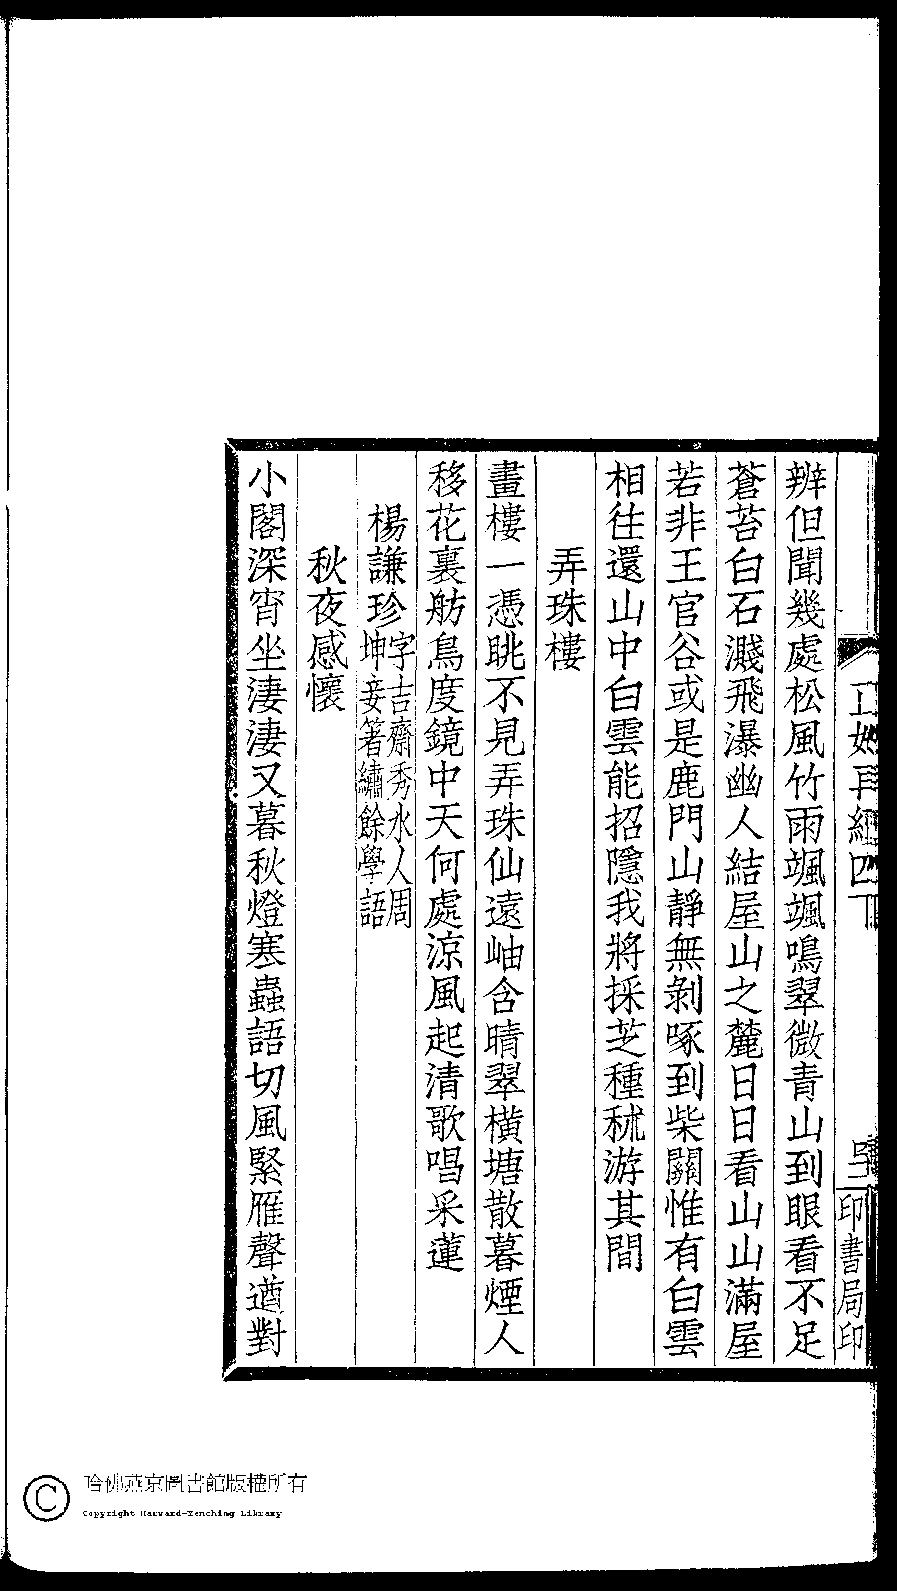 辨但聞幾處松風竹雨颯颯鳴翠微青山到眼看不足
蒼苔白石濺飛瀑幽人結屋山之麓日日看山山滿屋
若非王官谷或是鹿門山靜無剝啄到柴關惟有白雲
相往還山中白雲能招隱我將採芝種秫游其間
弄珠樓
畫樓一憑眺不見弄珠仙遠岫含晴翠橫塘散暮煙人
移花裏舫鳥度鏡中天何處涼風起清歌唱采蓮
楊謙珍字吉齋秀水人周
坤妾著繡餘學語
秋夜感懷
小閣深宵坐淒淒又暮秋燈寒蟲語切風緊雁聲遒對
印書局印
哈佛燕京圖書館版權所有
Copyright Harvard-Yenching Library